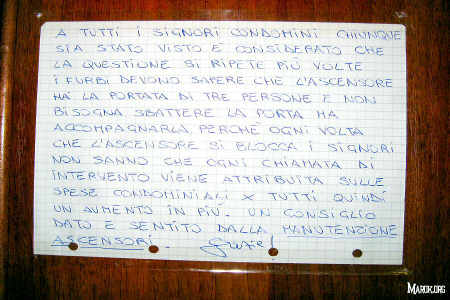 A TUTTI I SIGNORI CONDOMINI CHIUNQUE
SIA STATO VISTO E CONSIDERATO CHE
LA QUESTIONE SI RIPETE PIÙ VOLTE
I FURBI DEVONO SAPERE CHE L'ASCENSORE
HA LA PORTATA DI TRE PERSONE E NON
BISOGNA SBATTERE LA PORTA MA
ACCOMPAGNARLA, PERCHÈ OGNI VOLTA
CHE L'ASCENSORE SI BLOCCA I SIGNORI
NON SANNO CHE OGNI CHIAMATA DI
INTERVENTO VIENE ATTRIBUITA SULLE
SPESE CONDOMINIALI X TUTTI QUINDI
UN AUMENTO IN PIÙ. UN CONSIGLIO
DATO E SENTITO DALLA MANUTENZIONE
ASCENSORI. Grazie!
MAROK.ORG